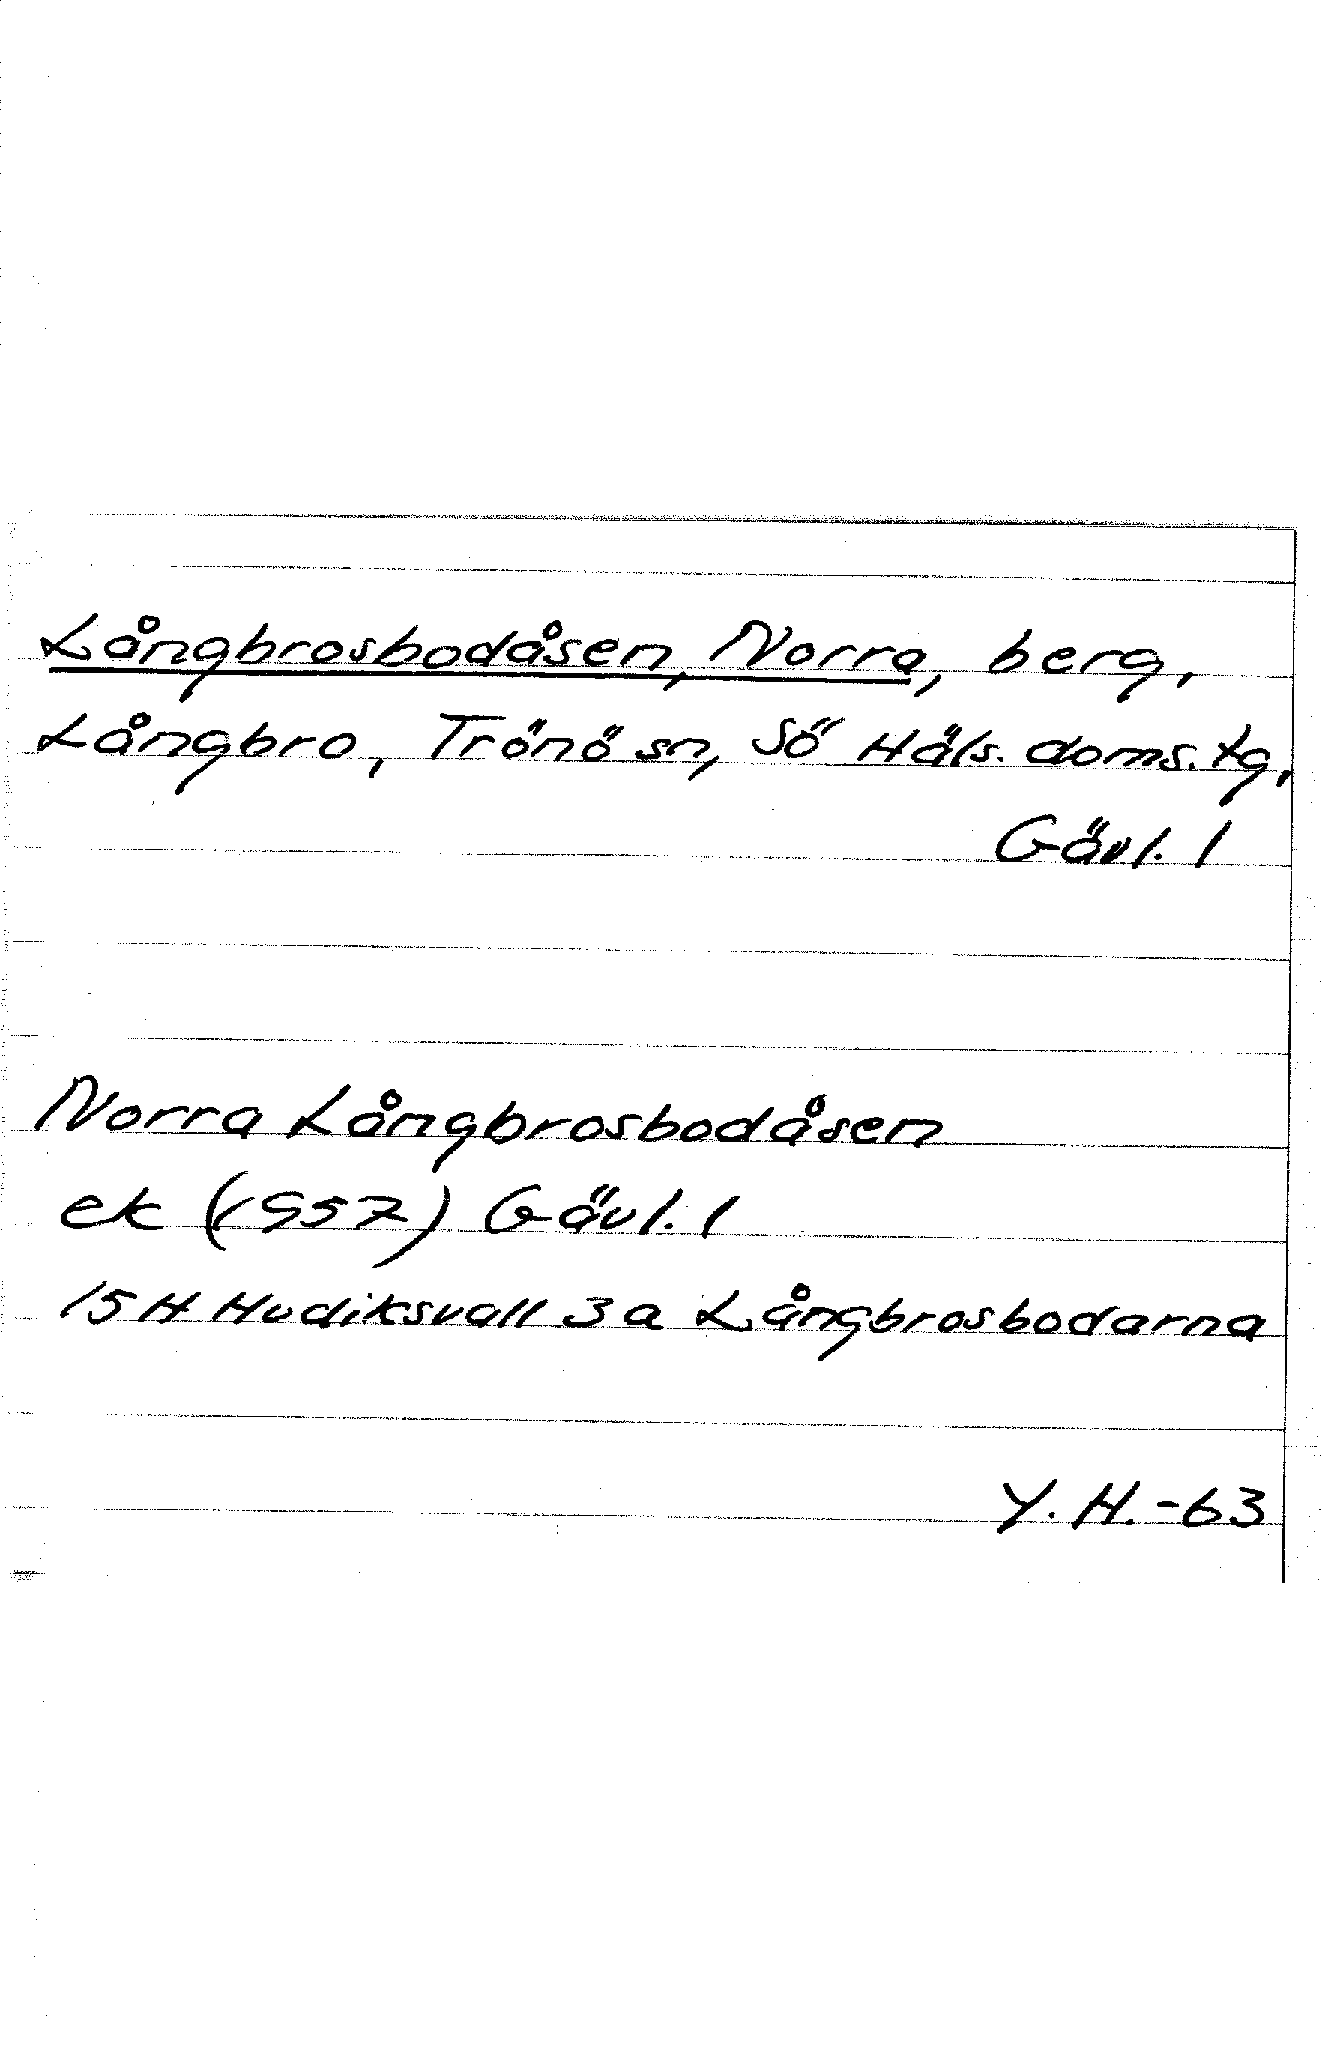 Långbrosbodåsen, Norra, berg,
Långbro, Trönö sn, Sö Häls. doms. tg,
Gävl. l
Norra Långbrosbodåsen
ek (1957) Gävl. l
15H Hudiksvall 3a Långbrosbodarna
Y. H. -63